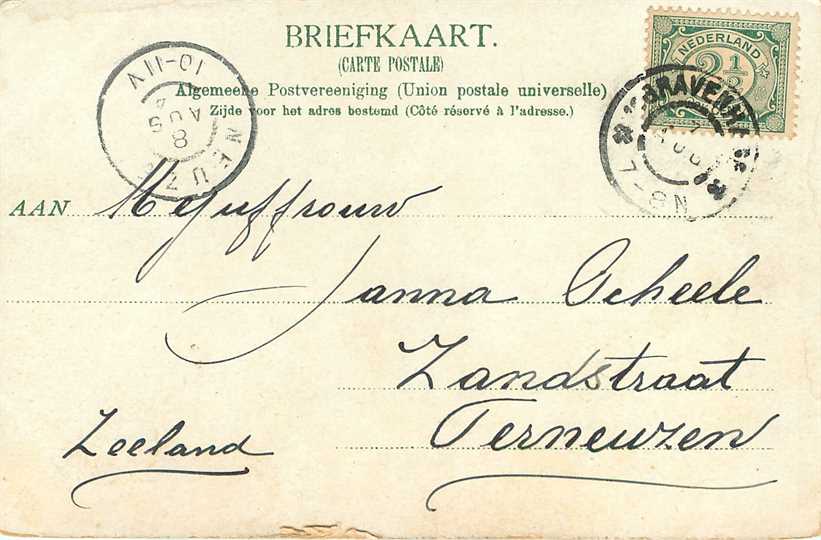 BRIEFKAART.
(CARTE POSTALE)
Algemeene Postvereeniging (Union postale universelle)
Zijde voor het adres bestemd (Côté réservé à l'adresse.)
NEDERLAND
2½
'SGRAVENHAGE
7-8N
NEUZ
8
AUG
10-11V
AAN Mejuffrouw
Janna Scheele
Zandstraat
Terneuzen
Zeeland